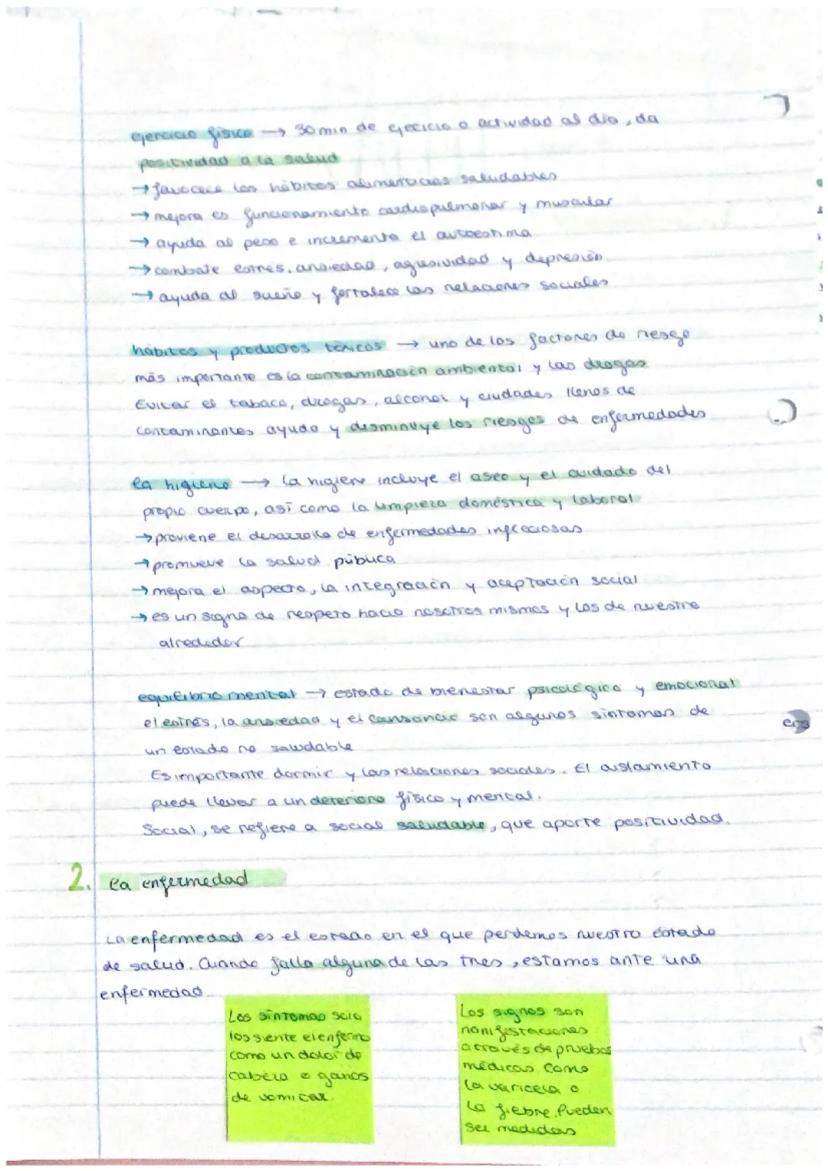 ejercicio físico → 30 min de ejecicio o actividad al día, da
positividad a la salud
→ favorece los hábitos alimenticios saludables
→ mejora es funcionamiento cardiopulmonar y muscular
→ ayuda al peso e incrementa el autoestima
→ combate estrés, ansiedad, agresividad y depresión
→ ayuda al sueño y fortalece las relaciones sociales
hábitos y productos tóxicos → uno de los factores de riesgo
más importante es la contaminación ambiental y las drogas
Evitar el tabaco, drogas, alcohol y ciudades llenos de
contaminantes ayuda y disminuye los riesgos de enfermedades
la higiene → la higiene incluye el aseo y el cuidado del
propio cuerpo, así como la limpieza doméstica y laboral
→ proviene el desarrollo de enfermedades infecciosas
→ promueve la salud pública
→ mejora el aspecto, la integración y aceptación social
→ es un signo de respeto hacia nosotros mismos y los de nuestro
alrededor
equilibrio mental → estado de bienestar psicológico y emocional
el estrés, la ansiedad y el cansancio son algunos síntomas de
un estado no saludable
Es importante dormir y las relaciones sociales. El aislamiento
puede llevar a un deterioro físico y mental.
Social, se refiere a social saludable, que aporte positividad.
2. la enfermedad
La enfermedad es el estado en el que perdemos nuestro estado
de salud. Cuando falla alguna de las tres, estamos ante una
enfermedad.
Los síntomas solo
los siente el enfermo
como un dolor de
cabeza o ganas
de vomitar.
Los signos son
manifestaciones
a través de pruebas
médicas como
la varicela o
la fiebre. Pueden
ser medidas